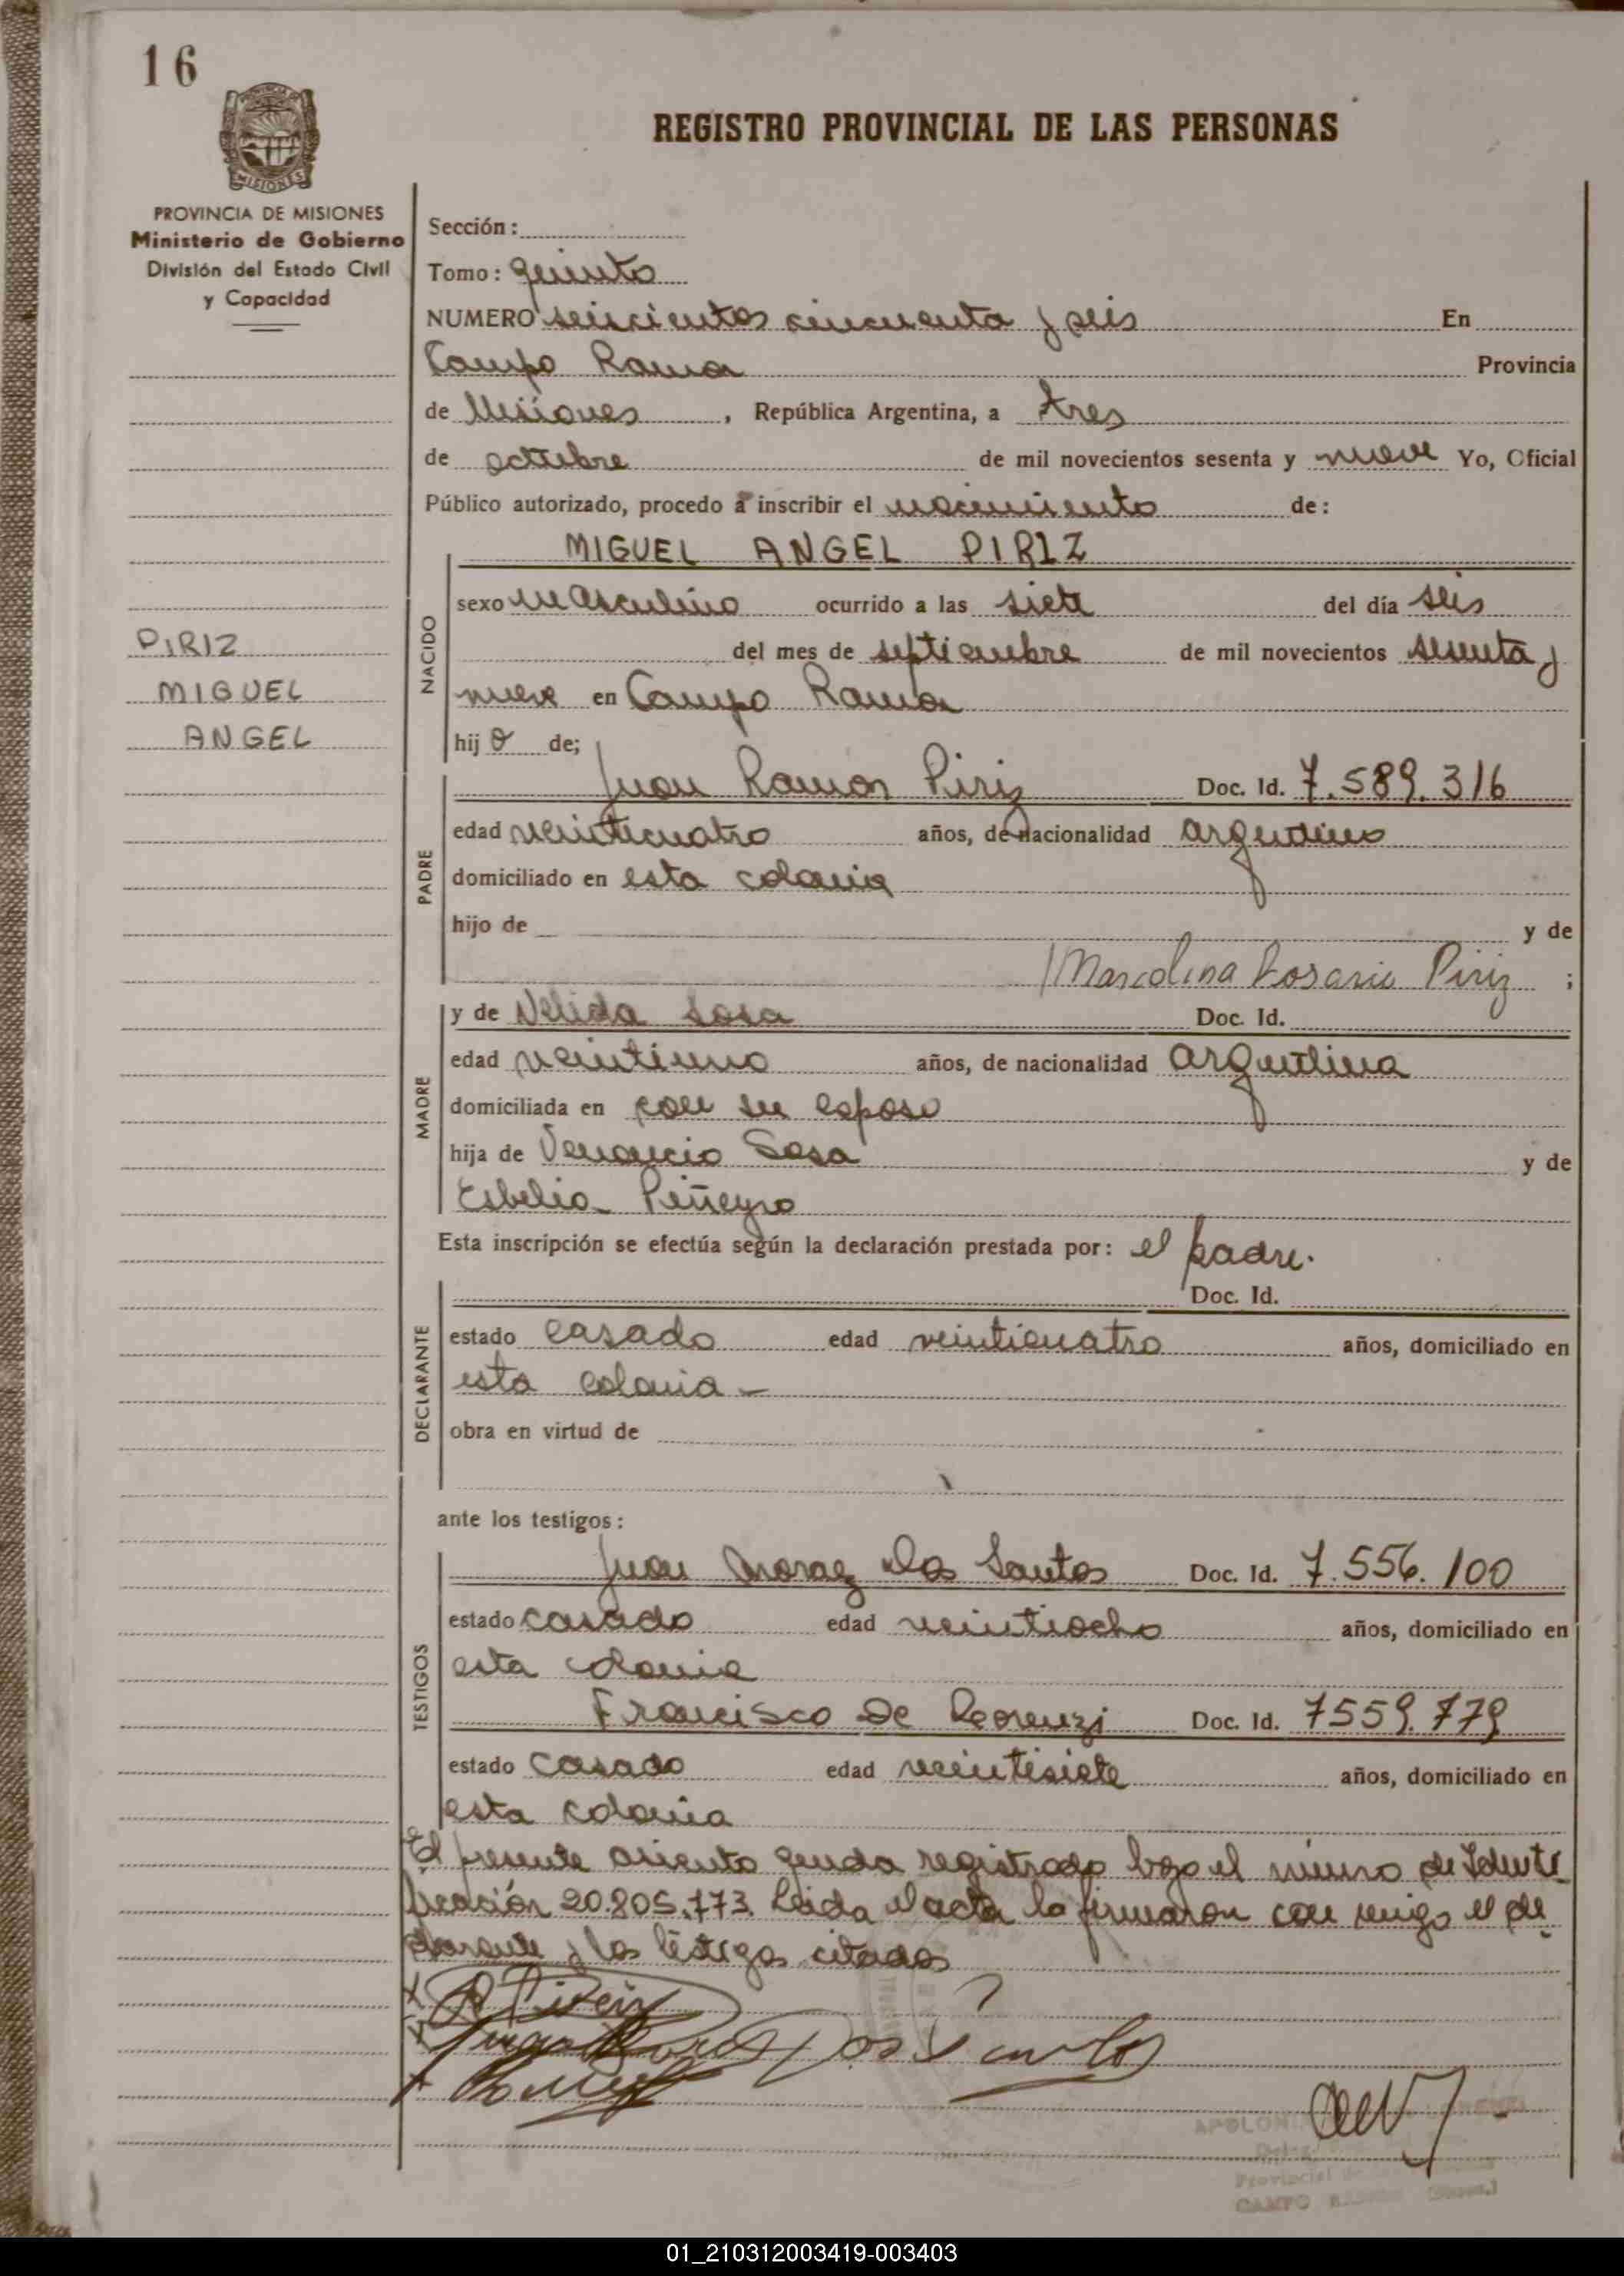 16
REGISTRO PROVINCIAL DE LAS PERSONAS
MISIONES
PROVINCIA DE MISIONES
Ministerio de Gobierno
División del Estado Civil
y Capacidad
Sección:
Tomo: quinto
NUMERO seiscientos cincuenta y seis En
Campo Ramon Provincia
de Misiones, República Argentina, a tres
de octubre de mil novecientos sesenta y nueve Yo, Oficial
Público autorizado, procedo a inscribir el nacimiento de:
MIGUEL ANGEL PIRIZ
NACIDO
sexo masculino ocurrido a las siete del día seis
del mes de septiembre de mil novecientos sesenta y
nueve en Campo Ramon
hijo de;
PIRIZ
MIGUEL
ANGEL
PADRE
Juan Ramon Piriz Doc. Id. 7.589.316
edad veinticuatro años, de nacionalidad argentino
domiciliado en esta colonia
hijo de y de
Marcolina Rosario Piriz ;
MADRE
y de Nelida Sosa Doc. Id.
edad veintiuno años, de nacionalidad argentina
domiciliada en con su esposo
hija de Venancio Sosa y de
Esbelia Piñeyro
Esta inscripción se efectúa según la declaración prestada por: el padre.
DECLARANTE
Doc. Id.
estado casado edad veinticuatro años, domiciliado en
esta colonia -
obra en virtud de
ante los testigos:
TESTIGOS
Juan Moraez Dos Santos Doc. Id. 7.556.100
estado casado edad veintiocho años, domiciliado en
esta colonia
Francisco De Lorenzi Doc. Id. 7559.779
estado casado edad veintisiete años, domiciliado en
esta colonia
El presente asiento queda registrado bajo el número de Identi
ficación 20.805.773. Leida el acta la firmaron con migo el de
clarante y los testigos citados
APOLONI
CAMPO
01_210312003419-003403